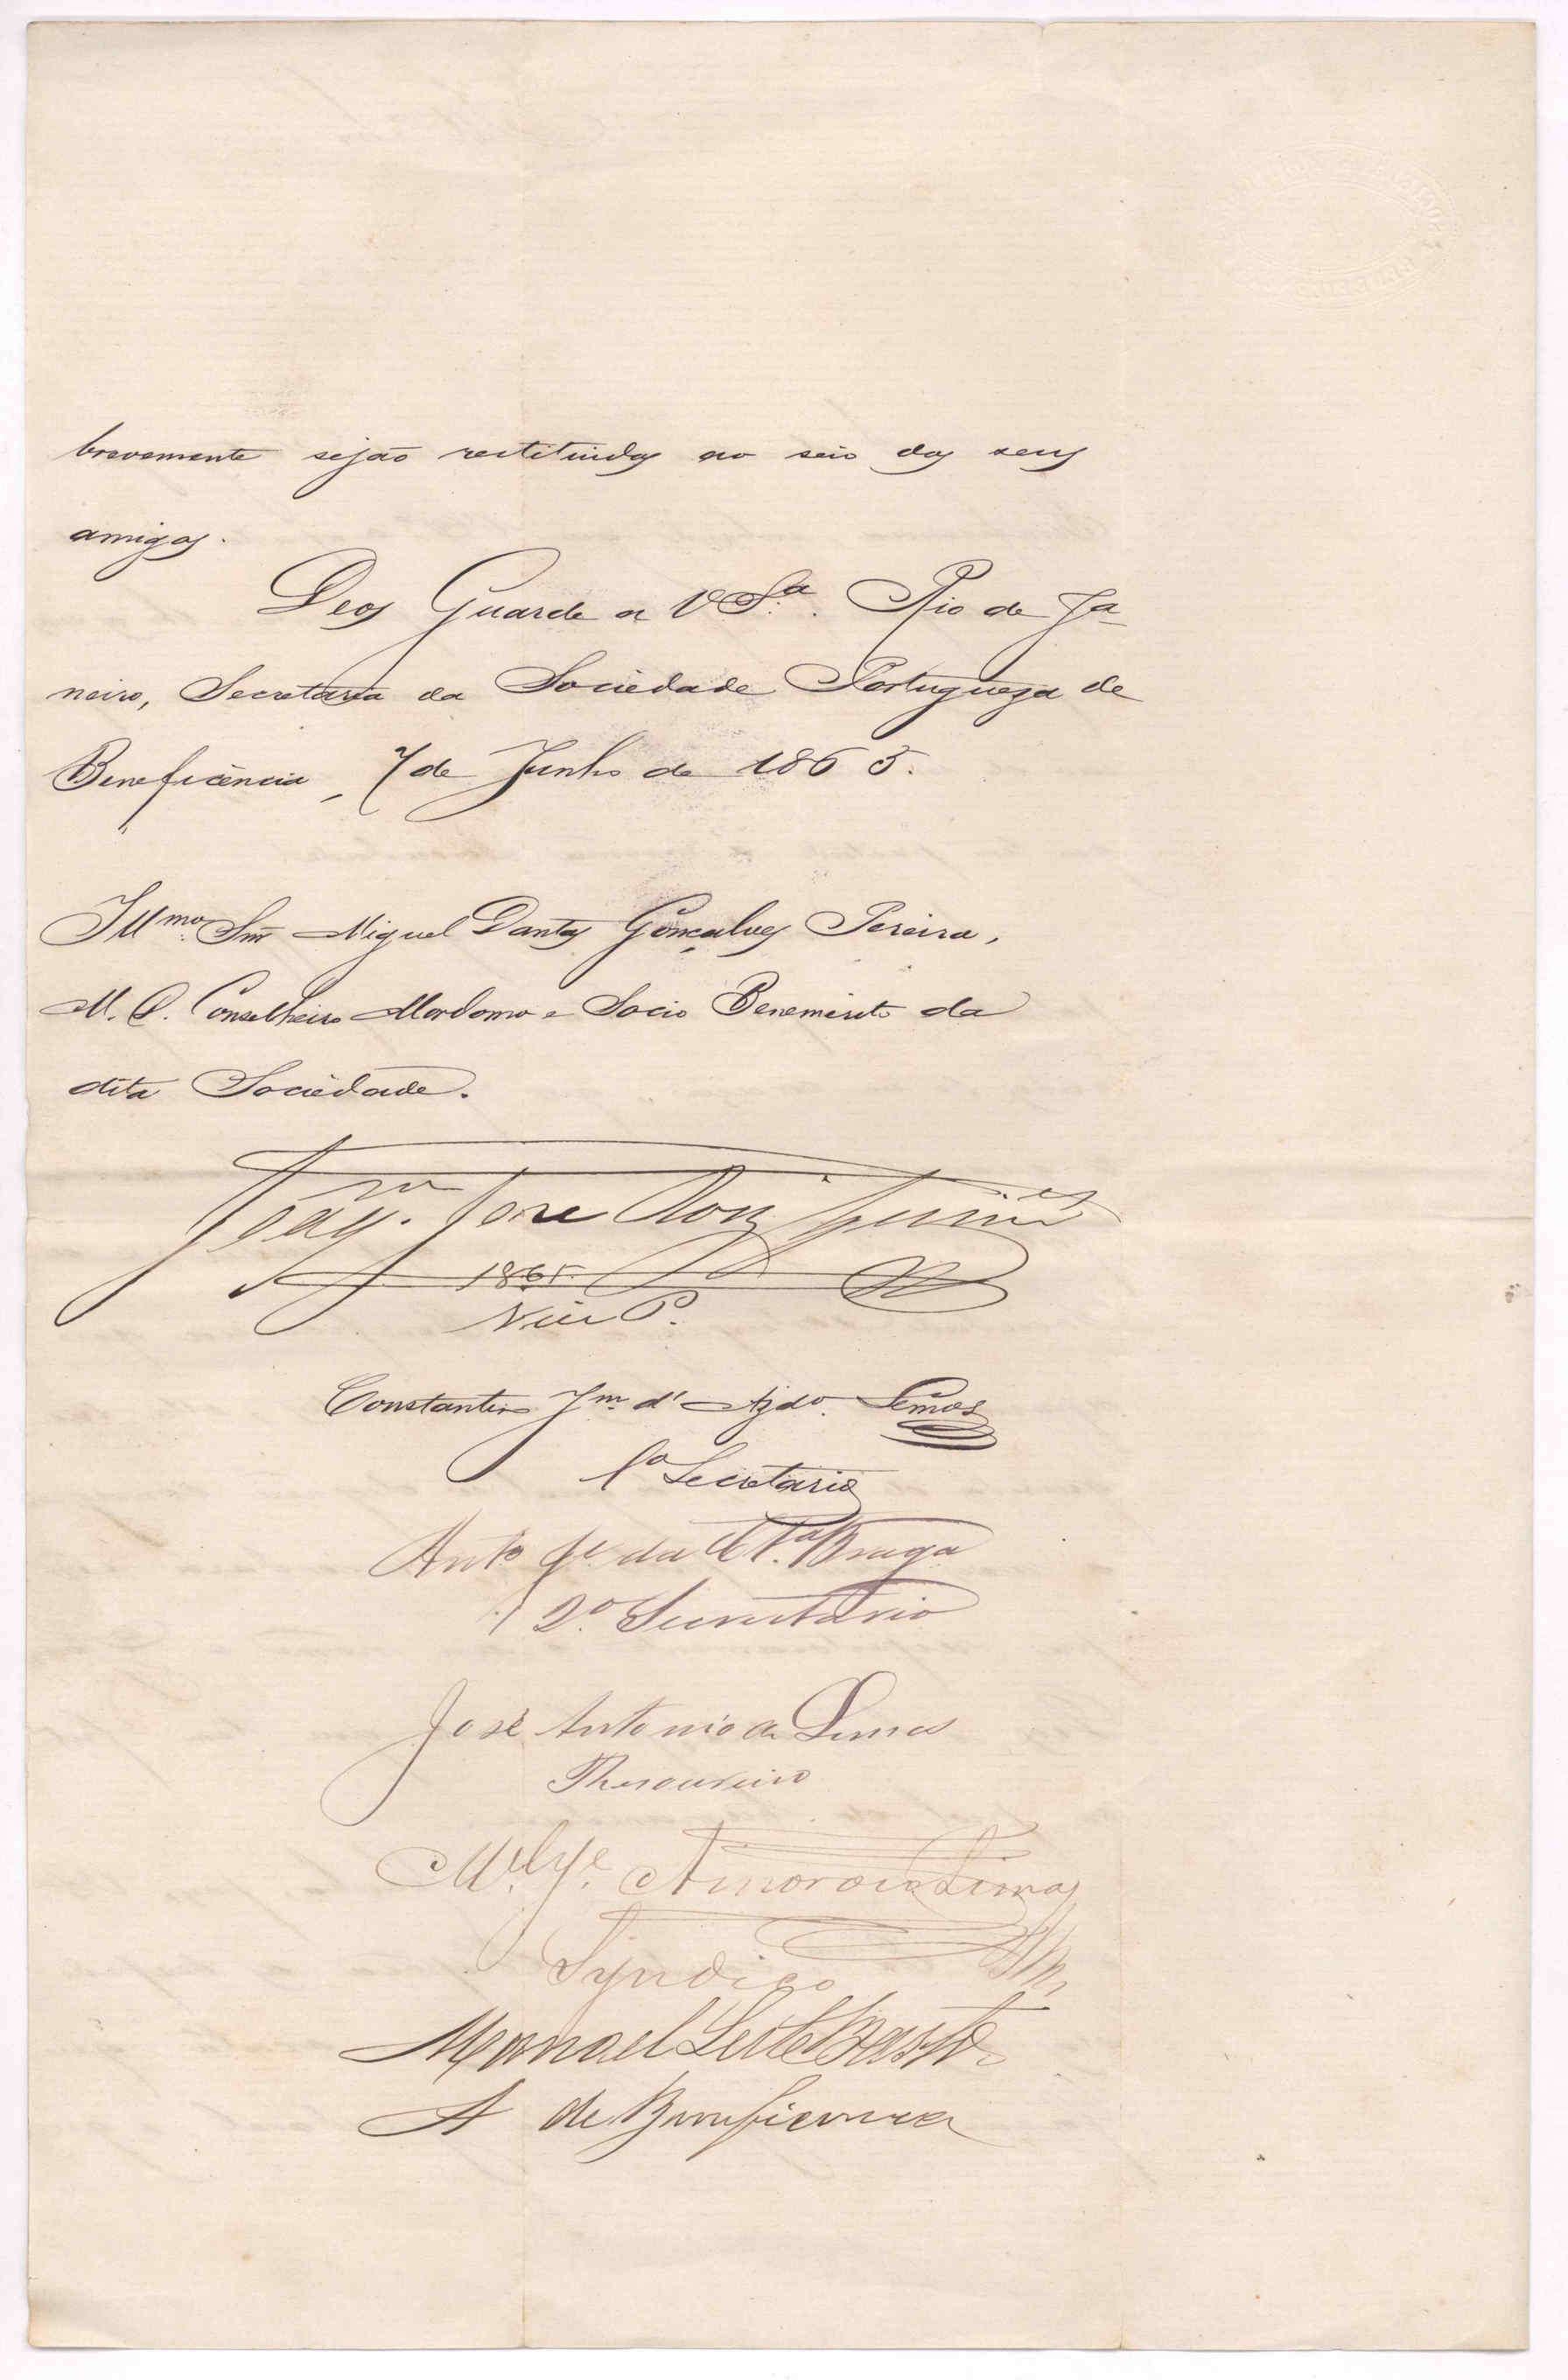 brevemente sejão restituidos ao seio dos seus
amigos.
Deos Guarde a V. S.ª. Rio de Ja-
neiro, Secretaria da Sociedade Portugueza de
Beneficência, 7 de Junho de 1865.
Illmo. Snr Miguel Dantas Gonçalves Pereira,
M. D. Conselheiro Mordomo e Socio Benemerito da
dita Sociedade.
José
1865.
Vice P.
Constantino Jm. d' Azdo. Lemos
1º Secretario
Anto da Braga
2º Secretario
José Antonio de Lemos
Thesoureiro
Mel. Je. Amoroso Lima
Syndico
Manoel Leite Bastos
A de Beneficencia